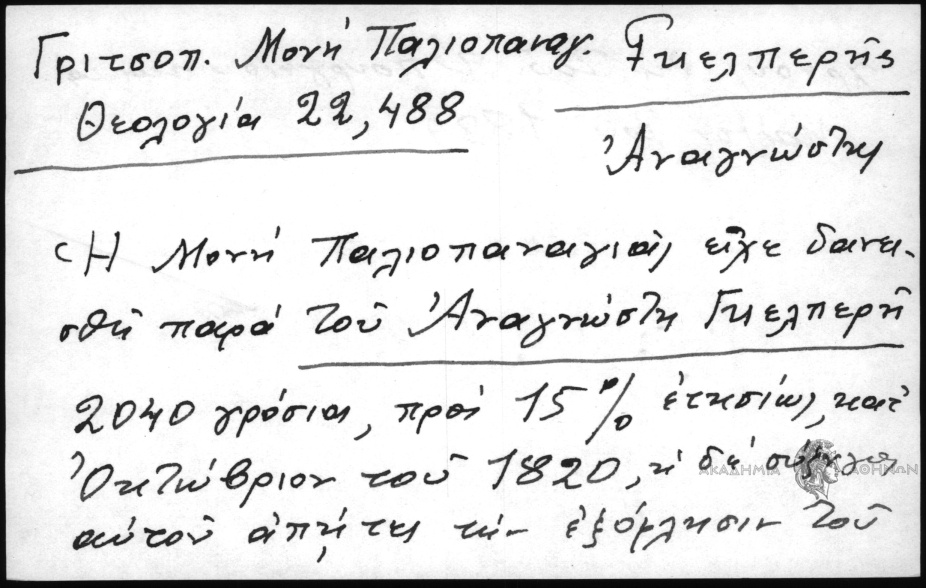 Γριτσοπ. Μονή Παλιοπαναγ.
Θεολογία 22, 488
Γκελπερῆς
Ἀναγνώστης
Ἡ Μονή Παλιοπαναγιᾶς εἶχε δανει-
σθῆ παρά τοῦ Ἀναγνώστη Γκελπερῆ
2040 γρόσια, πρός 15% ἐτησίως, κατ'
Ὀκτώβριον τοῦ 1820, ἡ δέ σύζυγος
αὐτοῦ ἀπῄτει τήν ἐξόφλησιν τοῦ
ΑΚΑΔΗΜΙΑ ΑΘΗΝΩΝ